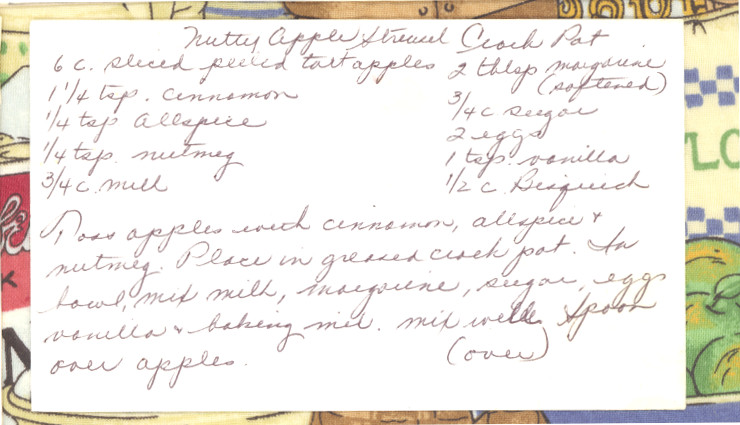 Nutty Apple Streusel Crock Pot
6 c. sliced peeled tart apples
1 1/4 tsp. cinnamon
1/4 tsp allspice
1/4 tsp. nutmeg
3/4 c. milk
2 tblsp margarine
(softened)
3/4 c sugar
2 eggs
1 tsp. vanilla
1/2 c. Bisquick
Toss apples with cinnamon, allspice +
nutmeg. Place in greased crock pot. In
bowl, mix milk, margarine, sugar, eggs
vanilla + baking mix. Mix well. Spoon
over apples. (over)